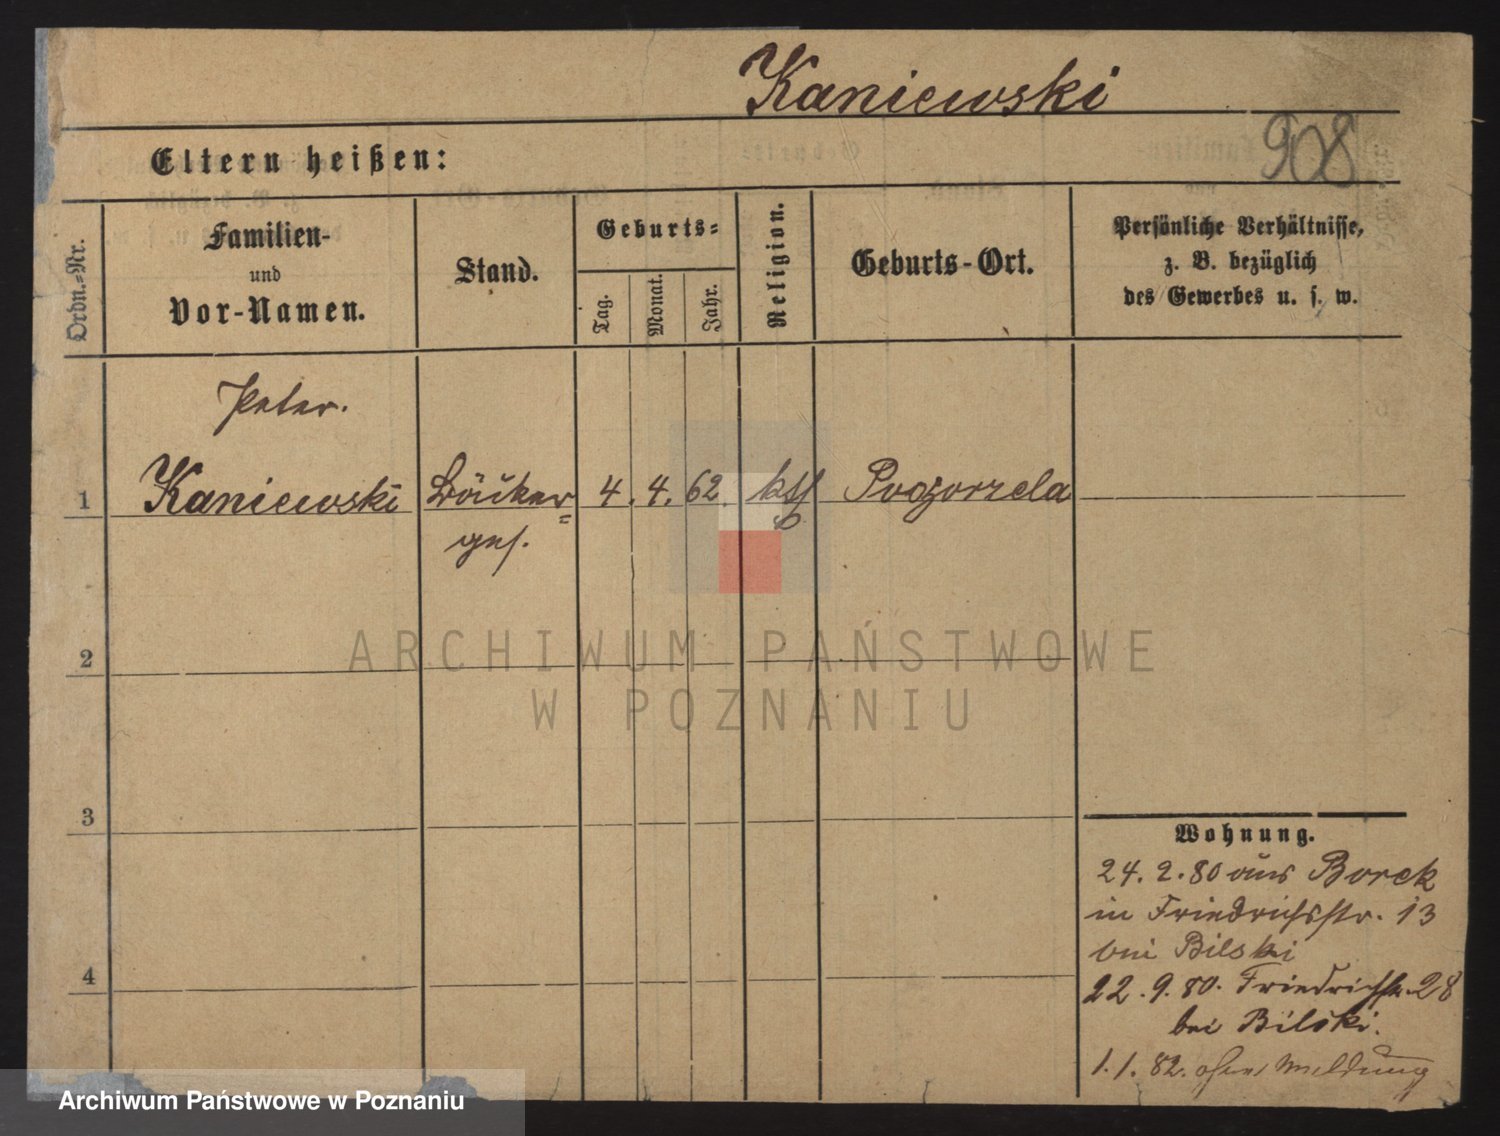 Kaniewski
908
Eltern heißen:
Ordn.-Nr.
Familien-
und
Vor-Namen.
Stand.
Geburts-
Tag.
Monat.
Jahr.
Religion.
Geburts-Ort.
Persönliche Verhältnisse,
z. B. bezüglich
des Gewerbes u. s. w.
Peter.
1 Kaniewski Bäcker= 4. 4. 62. kth Pogorzela
ges.
2
3
4
Wohnung.
24. 2. 80 aus Borek
in Friedrichsstr. 13
bei Bilski
22. 9. 80. Friedrichstr. 28
bei Bilski.
1. 1. 82. ohne Meldung
ARCHIWUM PAŃSTWOWE
W POZNANIU
Archiwum Państwowe w Poznaniu